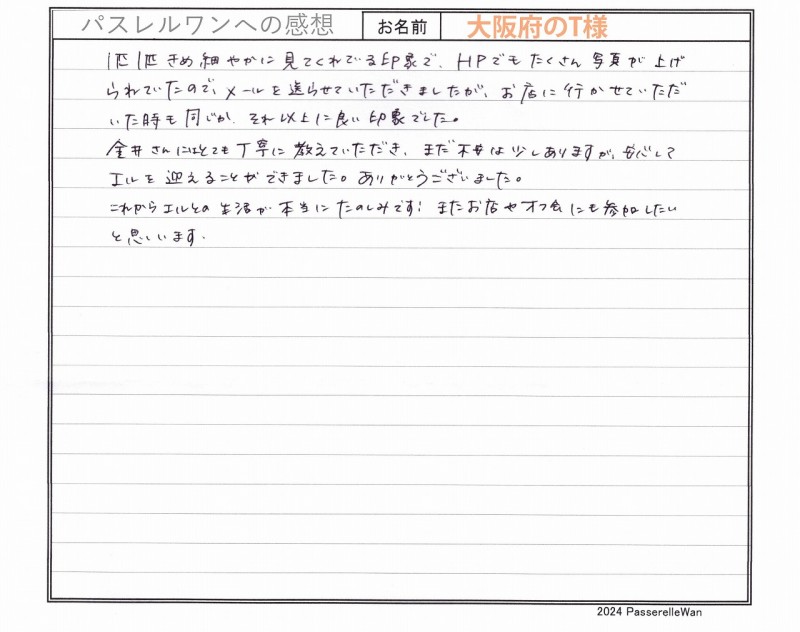 パスレルワンへの感想 お名前 大阪府のT様
1匹1匹きめ細やかに見てくれている印象で、HPでもたくさん写真が上げ
られていたので、メールを送らせていただきましたが、お店に行かせていただ
いた時も同じか、それ以上に良い印象でした。
金井さんにはとても丁寧に教えていただき、まだ不安は少しありますが、安心して
エルを迎えることができました。ありがとうございました。
これからエルとの生活が本当にたのしみです! またお店やオフ会にも参加したい
と思います.
2024 PasserelleWan